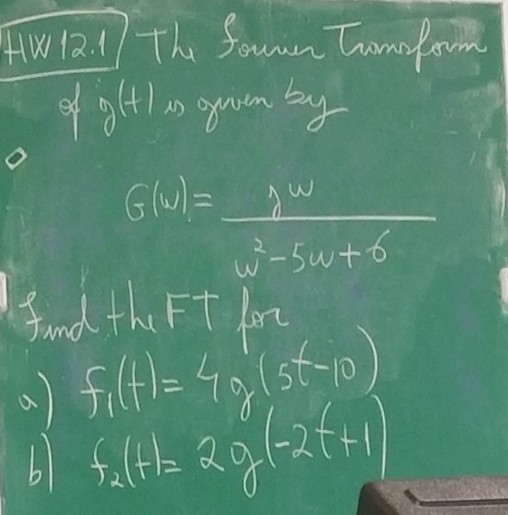 HW 12.1 The Fourier Transform
of g(t) is given by
G(w) = jw
w² - 5w + 6
Find the FT for
a) f₁(t) = 4g(5t-10)
b) f₂(t) = 2g(-2t+1)